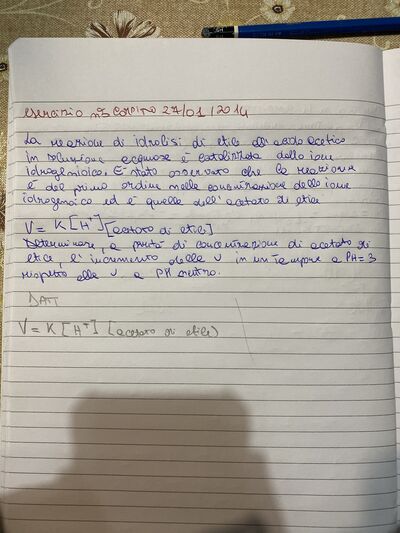 esercizio n°3 COMPITO 27/01/2014
La reazione di idrolisi di etile ad acido acetico
in soluzione acquosa è catalizzata dallo ione
idrogenoico. È stato osservato che la reazione
è del primo ordine nella concentrazione dello ione
idrogenoico ed è quella dell'acetato di etile
V = K[H⁺][acetato di etile]
Determinare, a parità di concentrazione di acetato di
etile, l'incremento della v in un tampone a PH=3
rispetto alla v a PH neutro.
DATI
V = K [H⁺] [acetato di etile)